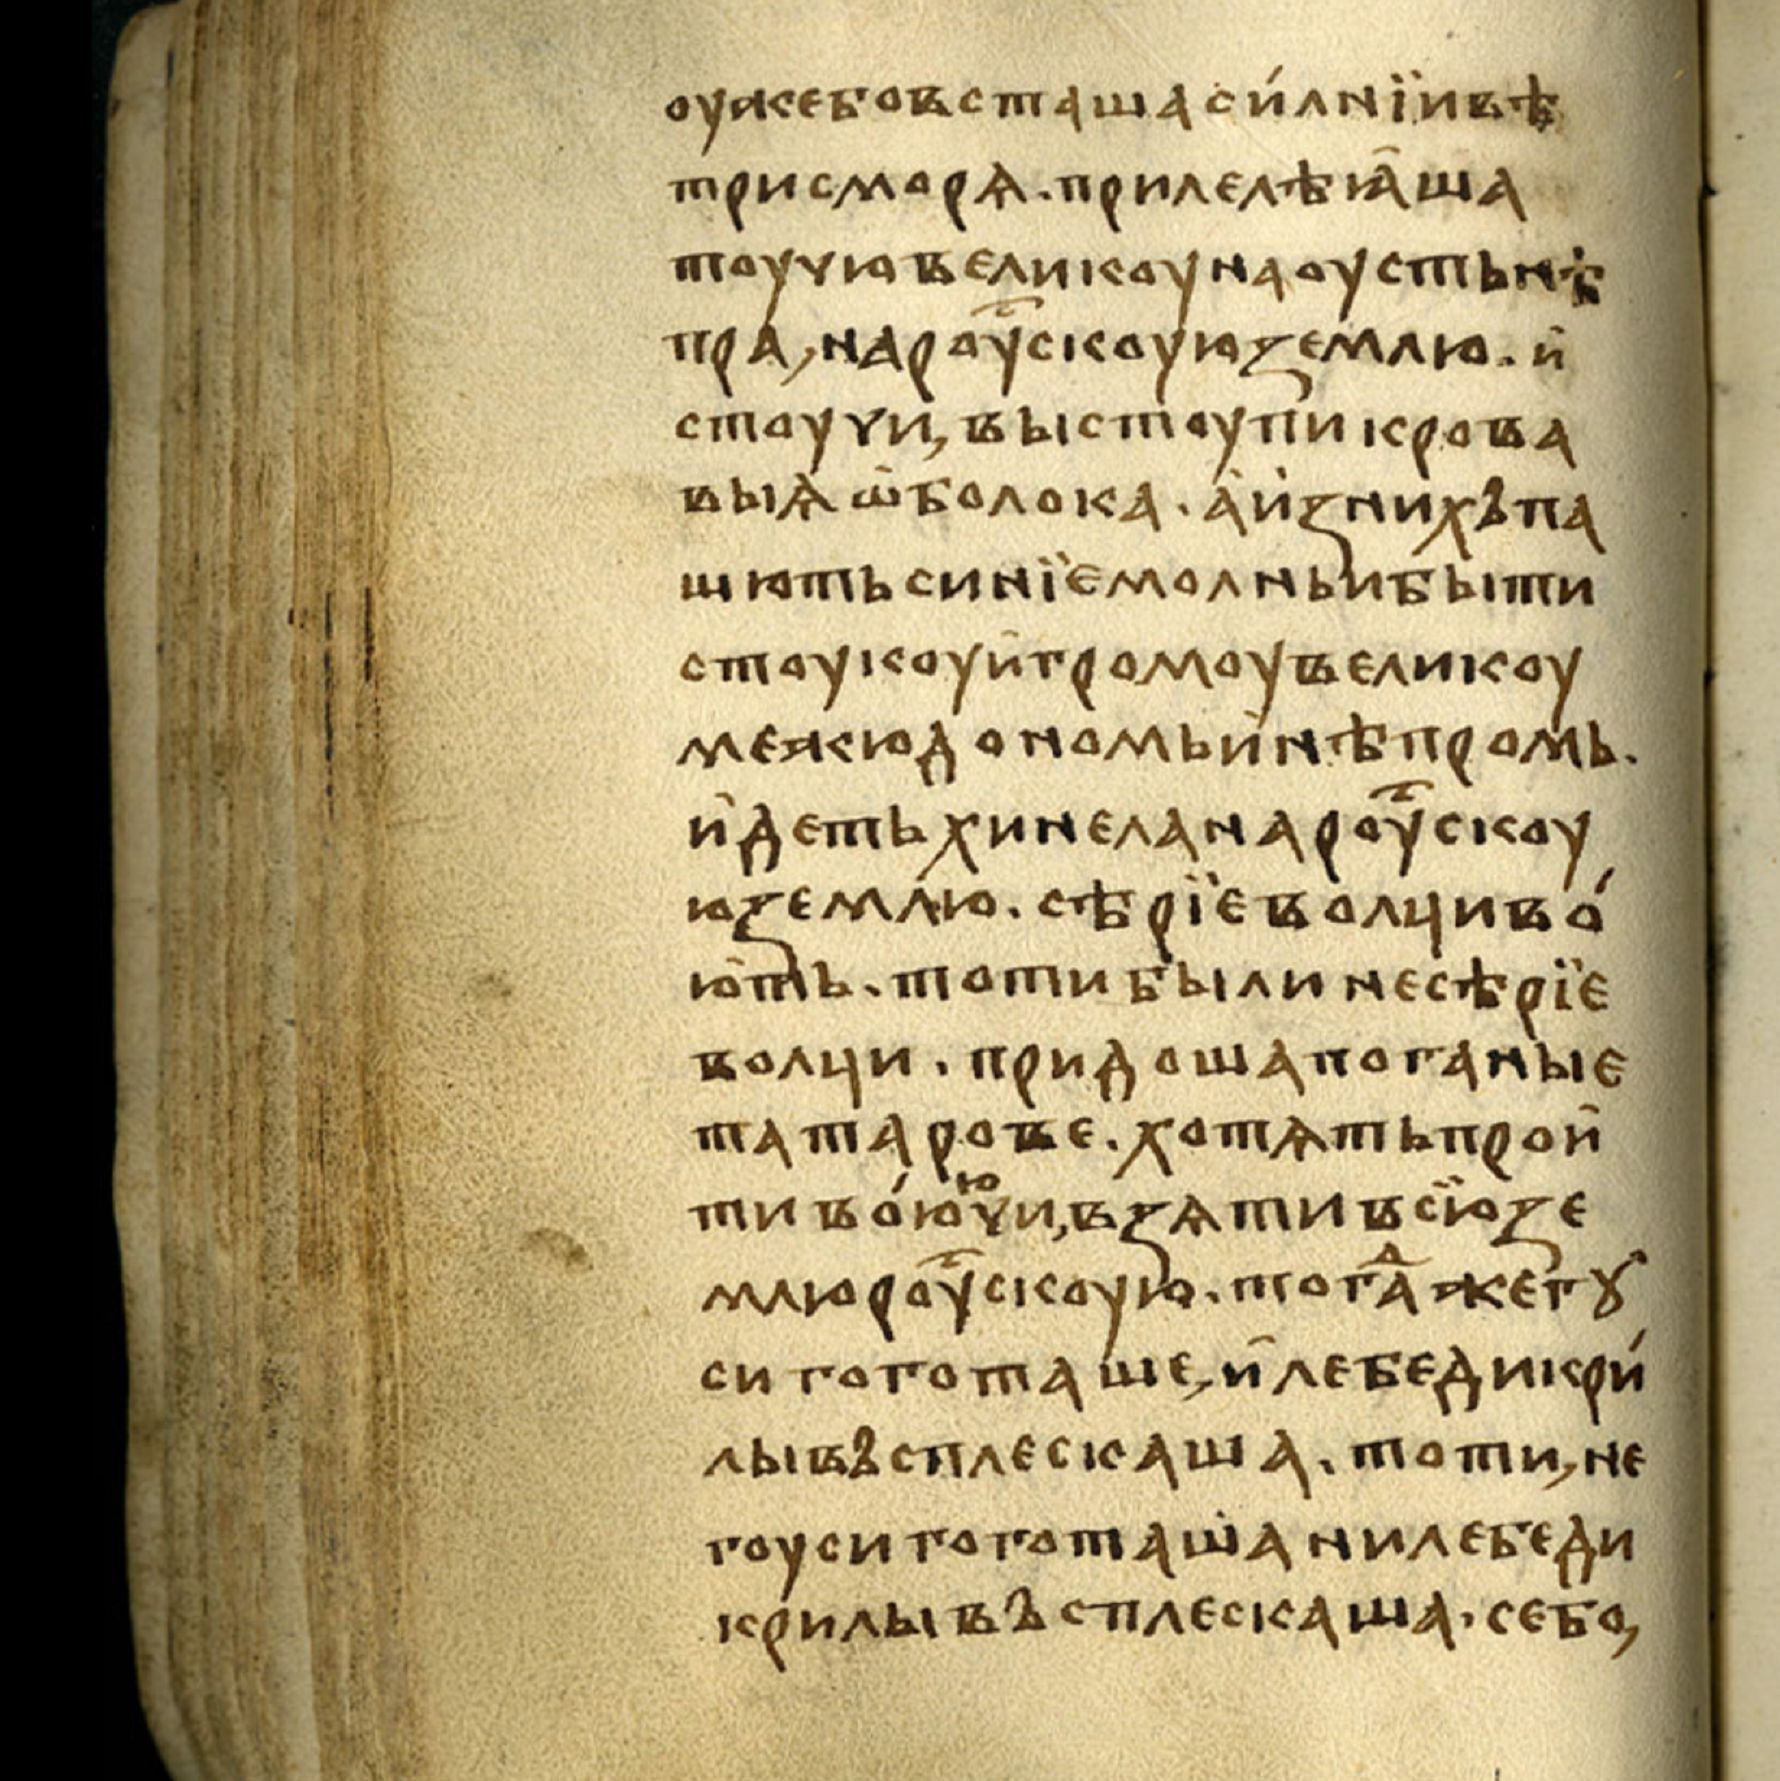 оужебовсташаси́лнїивѣ
трисморѧ.прилелѣꙗ̑ша
тоучювеликоунаоустьнѣ
пра,нароу̑сⷭ҇коуюꙁемлю.и҆
стоучи,выстоупикрова
выѧѡ҆болока.а҆и҆ꙁнихъпа
шютьсинїемолньибыти
стоукоуи҆громоувеликоу
межюдономьи҆нѣпромь.
и҆детьхинеланароусⷭ҇коу
юꙁемлю.сѣрїеволциво́
ю҆ть.тотибылинесѣрїе
волци.придошапоганые
татарове.хотѧтьпрои҆
тиво́ю҆ючи,вꙁѧтивсїюꙁе
млюроусⷭ҇коую.тогⷣажегꙋ
сигоготаше,и҆лебедикри́
лывъсплескаша.тоти,не
гоусигототашанилебеди
крилывъсплескаша.себо,